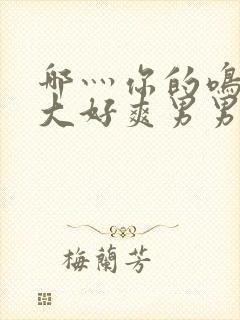 哪灬你的鳴
大好爽男男
梅蘭芳